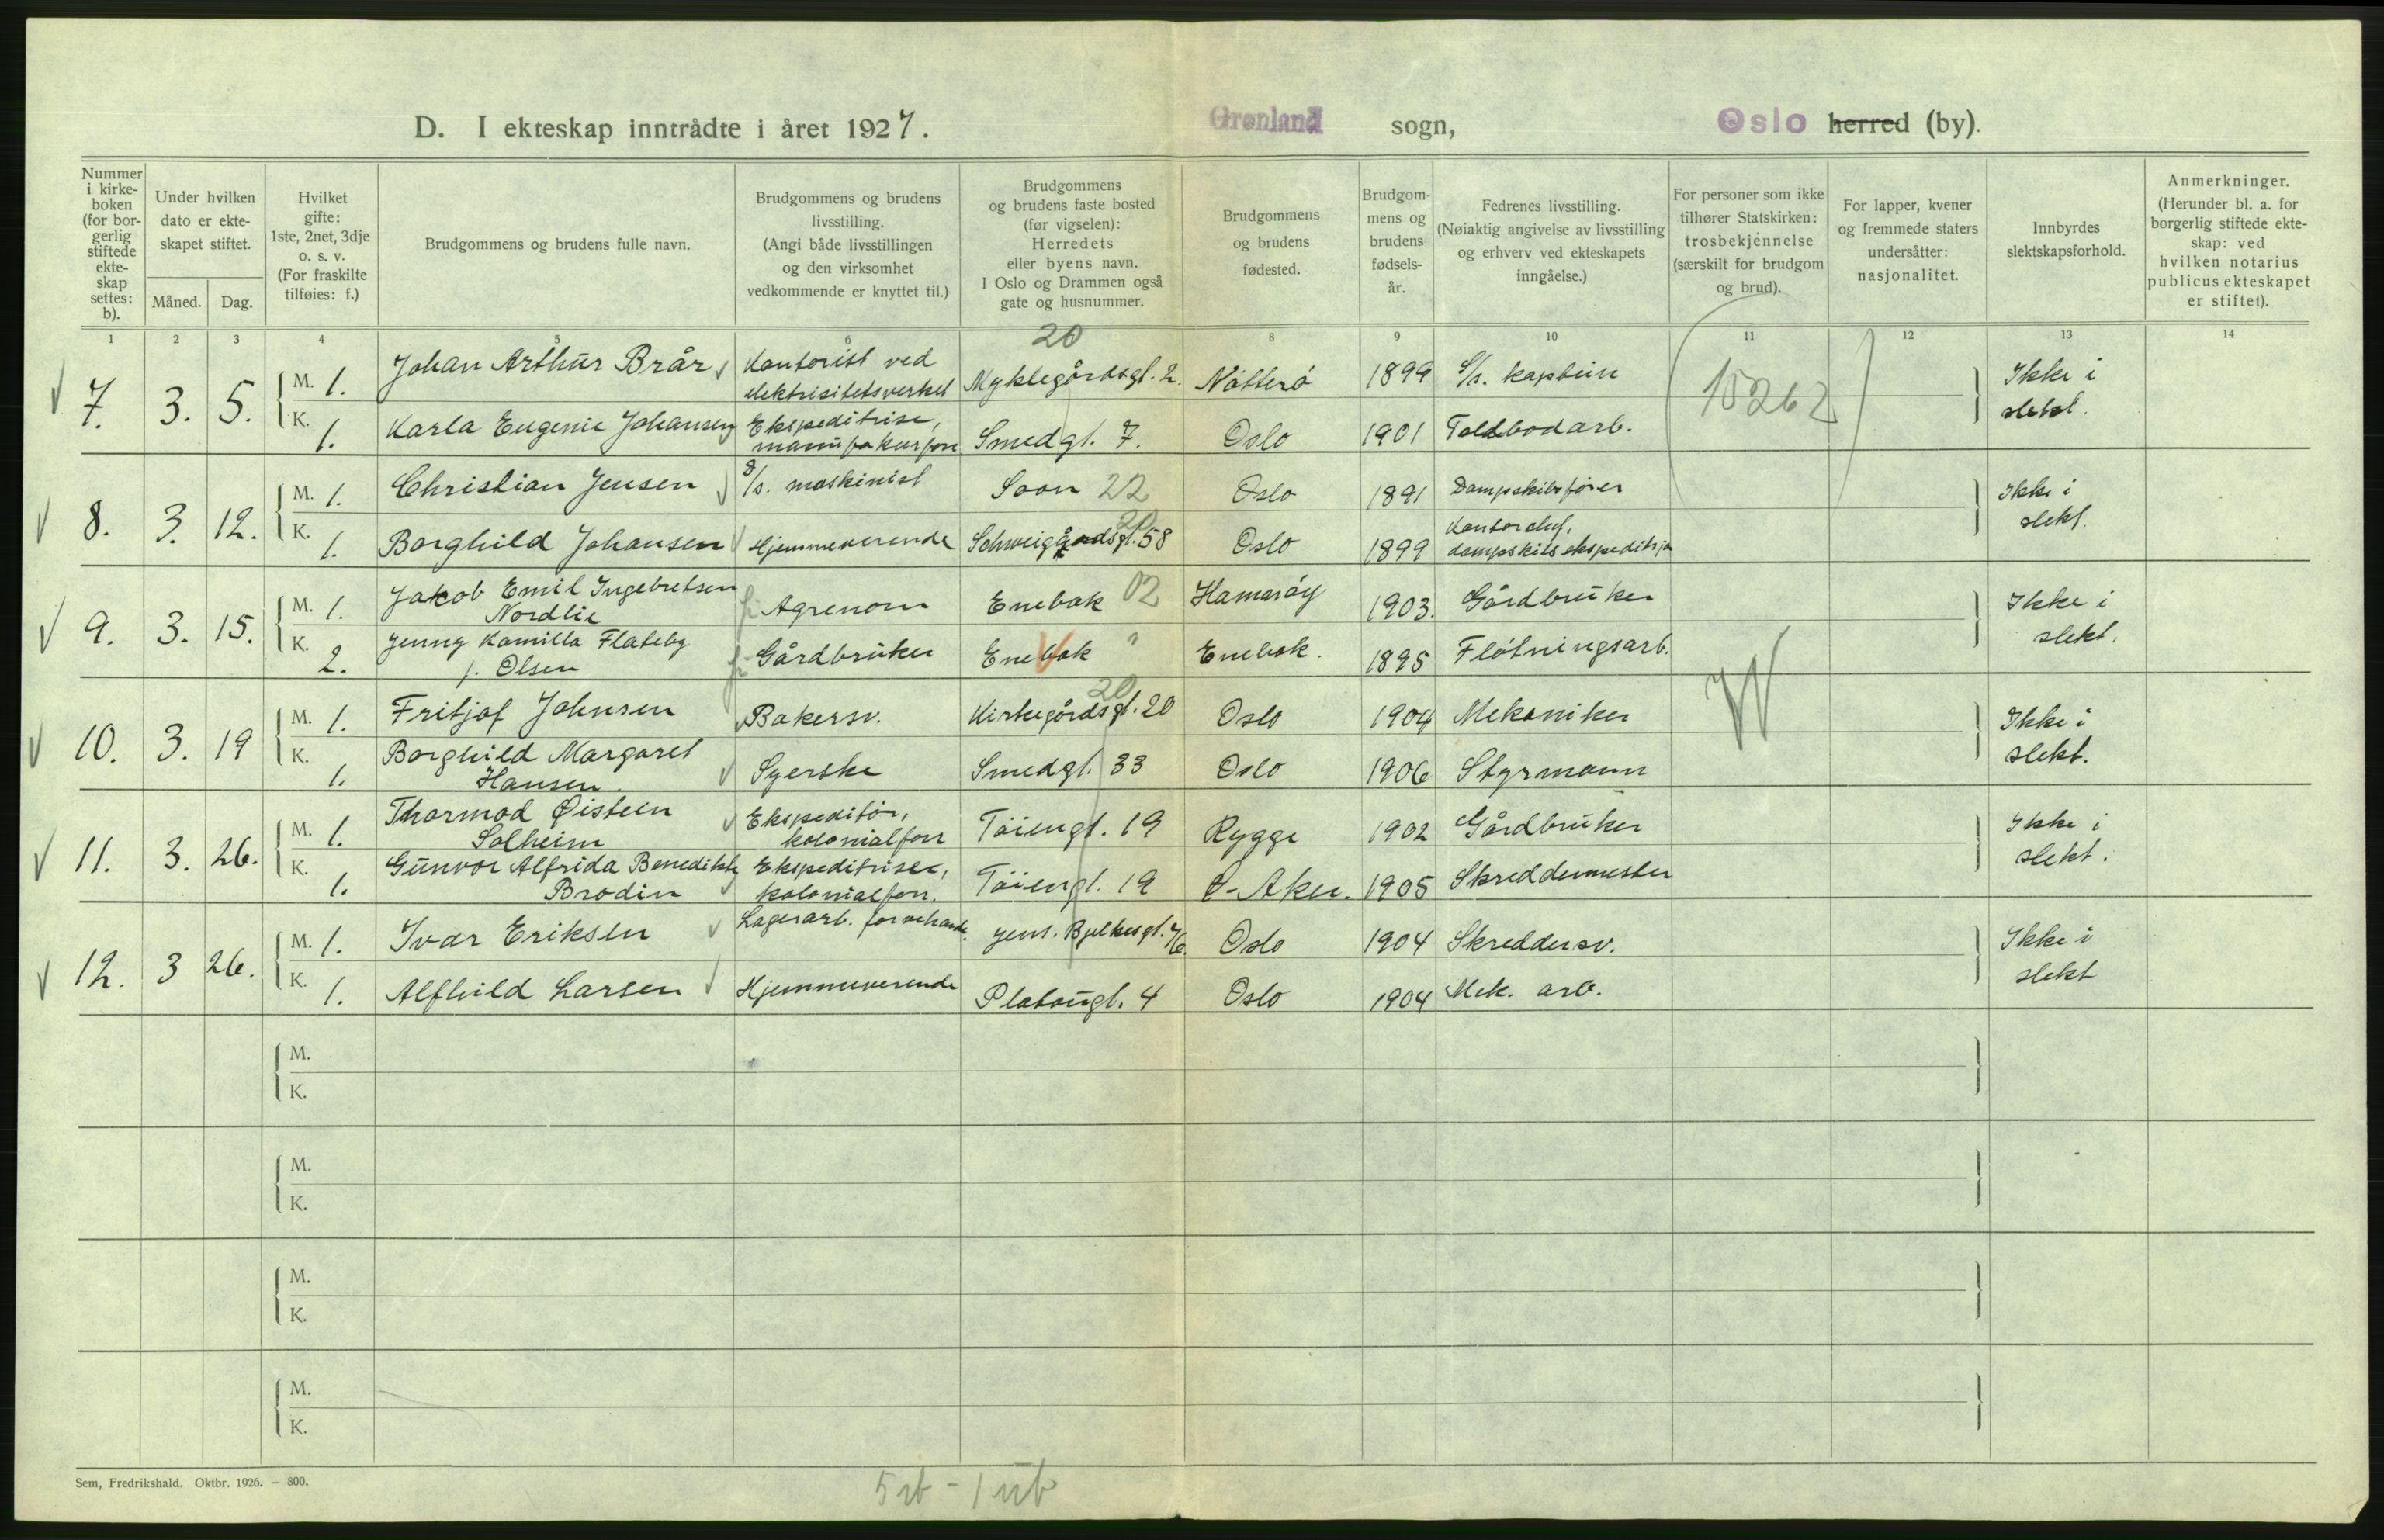 D. I ekteskap inntrådte i året 1927. Grønland sogn, Oslo herred (by).
Nummer i kirke- boken (for bor- gerlig stiftede ekte- skap settes: b).
Under hvilken dato er ekte- skapet stiftet.
Måned. Dag.
Hvilket gifte: 1ste, 2net, 3dje o. s. v. (For fraskilte tilføies: f.)
Brudgommens og brudens fulle navn.
Brudgommens og brudens livsstilling. (Angi både livsstillingen og den virksomhet vedkommende er knyttet til.)
Brudgommens og brudens faste bosted (før vigselen): Herredets eller byens navn. I Oslo og Drammen også gate og husnummer.
Brudgommens og brudens fødested.
Brudgom- mens og brudens fødsels- år.
Fedrenes livsstilling. (Nøiaktig angivelse av livsstilling og erhverv ved ekteskapets inngåelse.)
For personer som ikke tilhører Statskirken: trosbekjennelse (særskilt for brudgom og brud).
For lapper, kvener og fremmede staters undersåtter: nasjonalitet.
Innbyrdes slektskapsforhold.
Anmerkninger. (Herunder bl. a. for borgerlig stiftede ekte- skap: ved hvilken notarius publicus ekteskapet er stiftet).
1 2 3 4 5 6 8 9 10 11 12 13 14
20
7. 3. 5. M. 1. Johan Arthur Brår Kontorist ved elektrisitetsverket Myklegårdsgt. 2. Nøtterø 1899 S/s. kaptein 10262 Ikke i slekt.
K. 1. Karla Eugenie Johansen Ekspeditrise, manufakturforr Smedgt. 7. Oslo 1901 Toldbodarb.
8. 3. 12. M. 1. Christian Jensen S/s. maskinist Soon 22 Oslo 1891 Dampskibsfører Ikke i slekt.
K. 1. Borghild Johansen Hjemmeverende Schweigårdsgt. 58 20 Oslo 1899 Kontorchef, dampskibsekspedisjon
9. 3. 15. M. 1. Jakob Emil Ingebretsen Nordlie Agronom Enebak 02 Hamarøy 1903. Gårdbruker Ikke i slekt.
K. 2. Jenny Kamilla Flateby f. Olsen Gårdbruker Enebak " Enebak. 1895 Fløtningsarb.
10. 3. 19 M. 1. Fritjof Johnsen Bakersv. Kirkegårdsgt. 20 20 Oslo 1904 Mekaniker Ikke i slekt.
K. 1. Borghild Margaret Hansen. Syerske Smedgt. 33 Oslo 1906 Styrmann
11. 3. 26. M. 1. Thormod Øisteen Solheim Ekspeditør, kolonialforr Tøiengt. 19 Rygge 1902 Gårdbruker Ikke i slekt.
K. 1. Gunvor Alfrida Benedikte Brodin Ekspeditrise, kolonialforr. Tøiengt. 19 Ø-Aker. 1905 Skreddermester
12. 3 26. M. 1. Ivar Eriksen Lagerarb. Jens. Bjelkesgt. 76. Oslo 1904 Skreddersv. Ikke i slekt
K. 1. Alfhild Larsen Hjemmeverende Platougt. 4 Oslo 1904 Mek. arb.
M.
K.
M.
K.
M.
K.
M.
K.
Sem, Fredrikshald. Oktbr. 1926. — 800.
5 rb - 1 ub